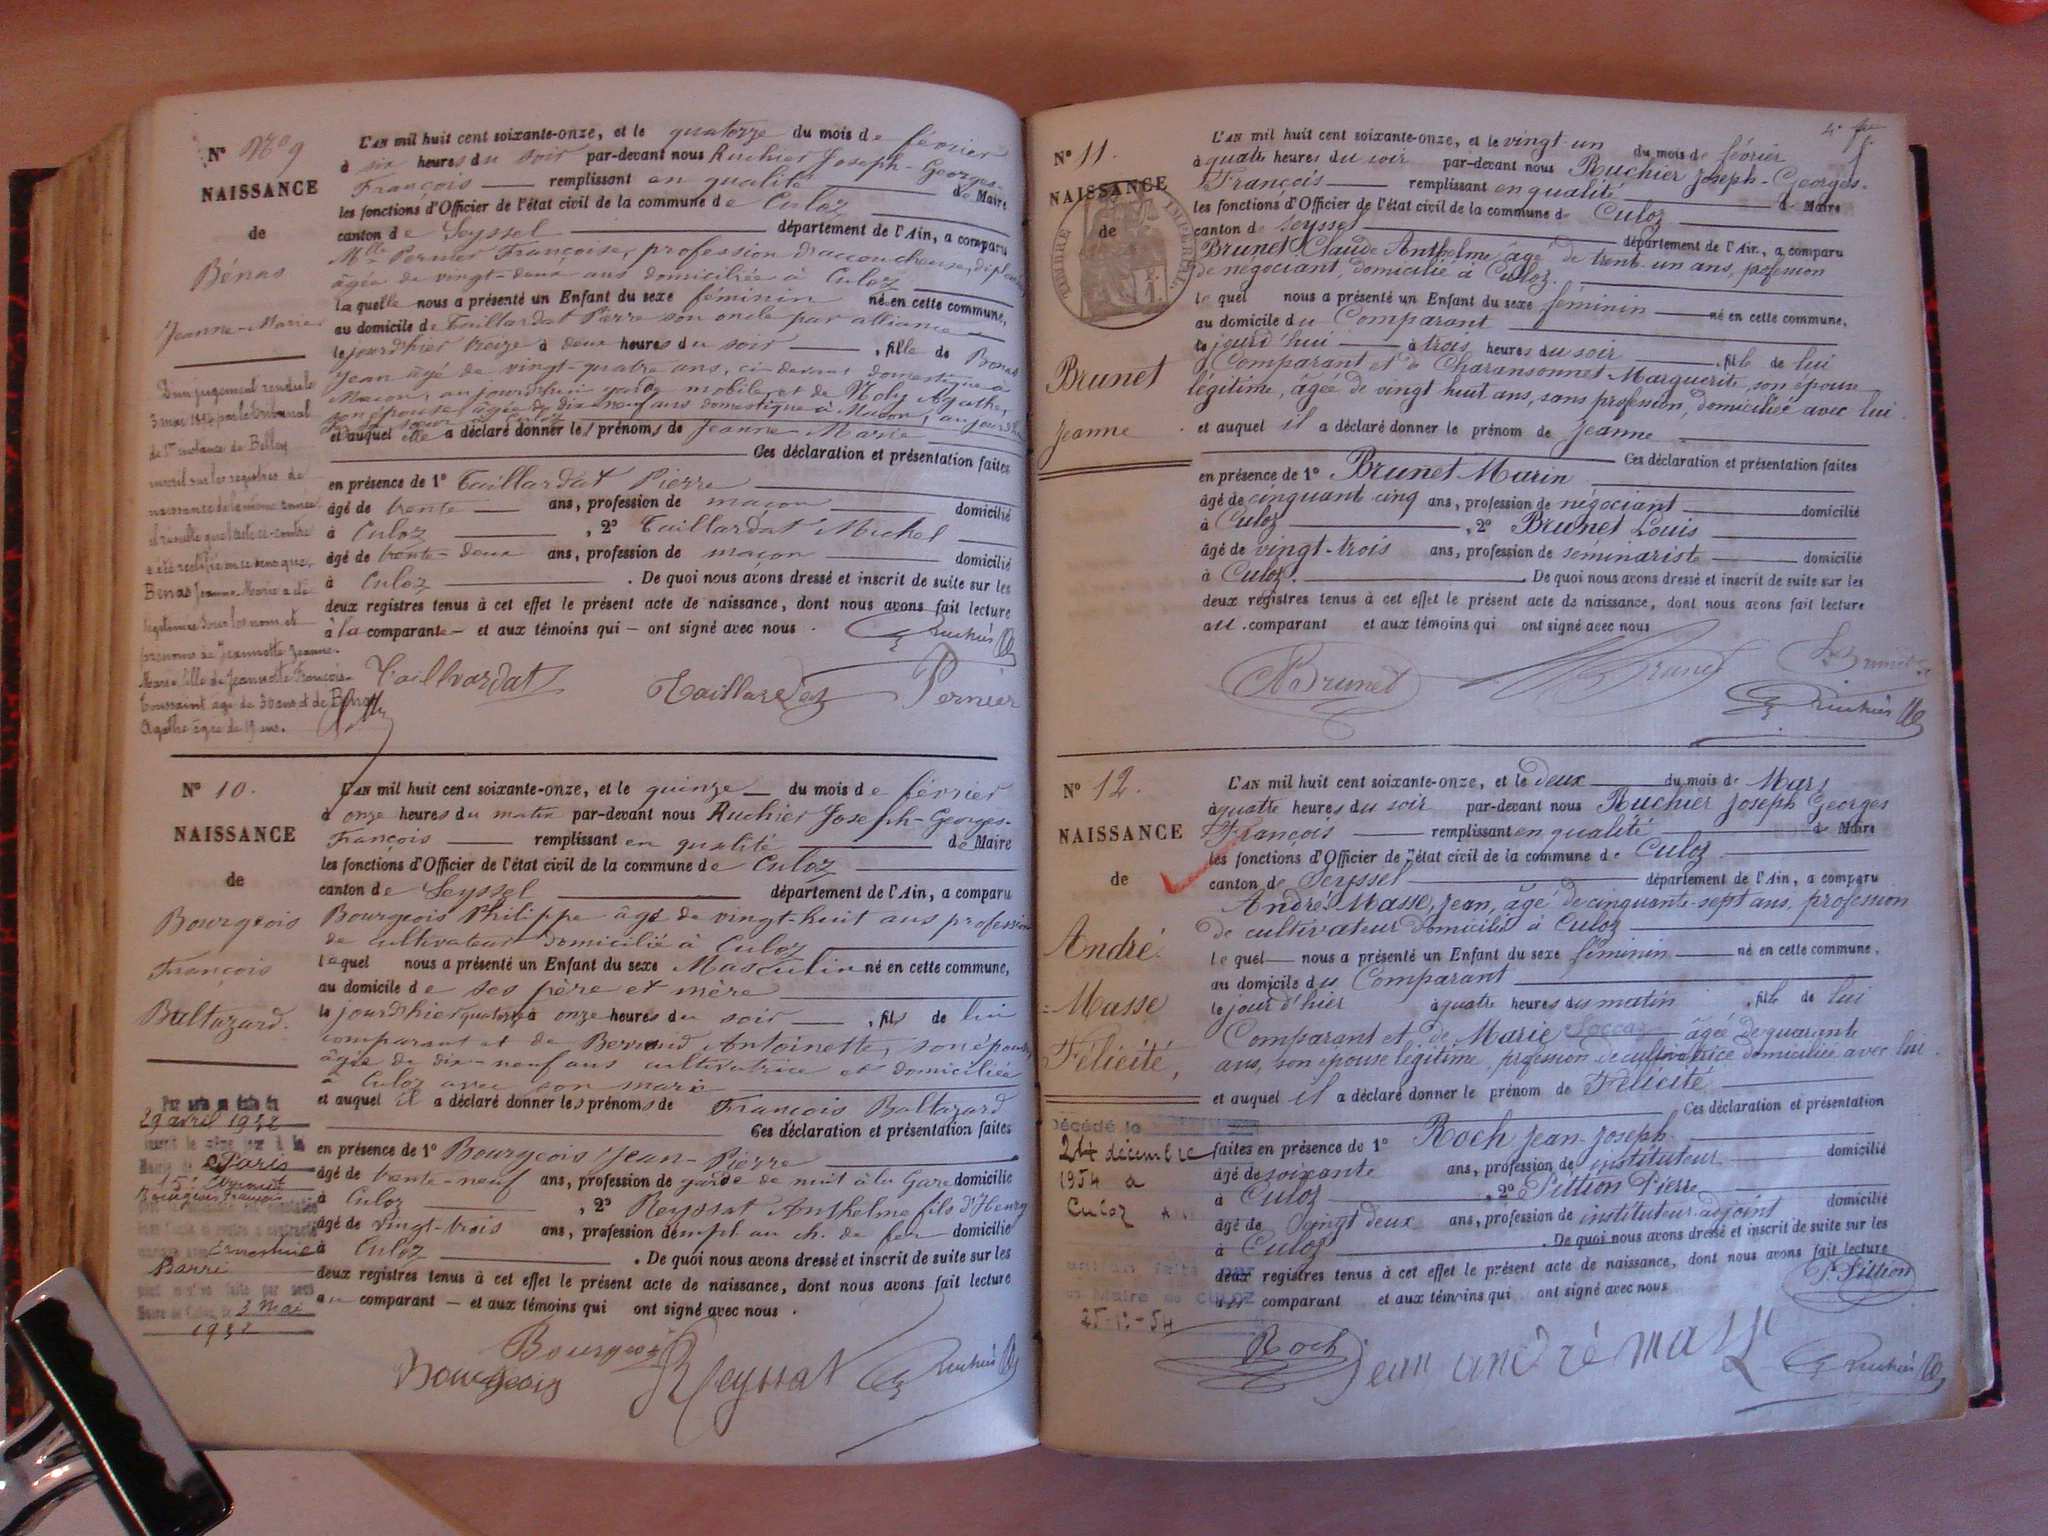 N° N° 9
NAISSANCE
de
Bénas
Jeanne-Marie
L'AN mil huit cent soixante-onze, et le quatorze du mois de février
à six heures du soir par-devant nous Ruchier Joseph-Georges-
François remplissant en qualité de Maire
les fonctions d'Officier de l'état civil de la commune de Culoz
canton de Seyssel département de l'Ain, a comparu
Mlle Pernier Françoise, profession d'accoucheuse,
âgée de vingt-deux ans domiciliée à Culoz
laquelle nous a présenté un Enfant du sexe féminin né en cette commune,
au domicile de Taillardat Pierre son oncle par alliance
le jourd'hier treize à deux heures du soir , fille de Benas
Jean âgé de vingt-quatre ans, ci-devant domestique à
Macon, aujourd'hui garde mobile, et de Agathe,
son épouse, âgée de dix-neuf ans domestique à Macon,
et auquel elle a déclaré donner les prénoms de Jeanne-Marie
Ces déclaration et présentation faites
en présence de 1° Taillardat Pierre
âgé de trente ans, profession de maçon domicilié
à Culoz , 2° Taillardat Michel
âgé de trente-deux ans, profession de maçon domicilié
à Culoz . De quoi nous avons dressé et inscrit de suite sur les
deux registres tenus à cet effet le présent acte de naissance, dont nous avons fait lecture
à la comparante et aux témoins qui ont signé avec nous . Ruchier
D'un jugement rendu le
3 mai par le tribunal
de 1re instance de Belley
inscrit sur les registres de
naissance de la même année
il résulte que l'acte ci-contre
a été rectifié en ce sens que,
Benas Jeanne Marie a été
légitimée sous les nom et
prénoms de Jeannotte Jeanne-
Marie fille de Jeannotte François-
Toussaint âgé de 30 ans et de
Agathe âgée de 19 ans.
Taillardat Taillardat Pernier
N° 10.
NAISSANCE
de
Bourgeois
François
Baltazard.
L'AN mil huit cent soixante-onze, et le quinze du mois de février
à onze heures du matin par-devant nous Ruchier Joseph-Georges-
François remplissant en qualité de Maire
les fonctions d'Officier de l'état civil de la commune de Culoz
canton de Seyssel département de l'Ain, a comparu
Bourgeois Philippe âgé de vingt-huit ans profession
de cultivateur domicilié à Culoz
lequel nous a présenté un Enfant du sexe Masculin né en cette commune,
au domicile de ses père et mère
le jourd'hier quatorze à onze heures du soir , fils de lui
comparant et de Antoinette, son épouse,
âgée de dix-neuf ans cultivatrice et domiciliée
à Culoz avec son mari
et auquel il a déclaré donner les prénoms de François Baltazard
Ces déclaration et présentation faites
en présence de 1° Bourgeois Jean-Pierre
âgé de trente-neuf ans, profession de garde de nuit à la Gare domicilié
à Culoz , 2° Reyssat Anthelme fils d'Henry
âgé de vingt-trois ans, profession de empl au ch. de fer domicilié
à Culoz . De quoi nous avons dressé et inscrit de suite sur les
deux registres tenus à cet effet le présent acte de naissance, dont nous avons fait lecture
au comparant et aux témoins qui ont signé avec nous .
Par acte en date du
29 avril 1932
Mairie de Paris
Bourgeois François
Barré
3 Mai
1932
Bourgeois
Bourgeois Reyssat Ruchier
N° 11.
NAISSANCE
de
TIMBRE IMPERIAL
Brunet
Jeanne
L'AN mil huit cent soixante-onze, et le vingt un du mois de février
à quatre heures du soir par-devant nous Ruchier Joseph-Georges-
François remplissant en qualité de Maire
les fonctions d'Officier de l'état civil de la commune de Culoz
canton de Seyssel département de l'Ain, a comparu
Brunet Claude Anthelme âgé de trente-un ans, profession
de négociant, domicilié à Culoz.
lequel nous a présenté un Enfant du sexe féminin né en cette commune,
au domicile du Comparant
le jourd'hui à trois heures du soir , fille de lui
Comparant et de Charansonnet Marguerite, son épouse
légitime, âgée de vingt huit ans, sans profession, domiciliée avec lui.
et auquel il a déclaré donner le prénom de Jeanne
Ces déclaration et présentation faites
en présence de 1° Brunet Marin
âgé de cinquant cinq ans, profession de négociant domicilié
à Culoz , 2° Brunet Louis
âgé de vingt-trois ans, profession de séminariste domicilié
à Culoz. . De quoi nous avons dressé et inscrit de suite sur les
deux registres tenus à cet effet le présent acte de naissance, dont nous avons fait lecture
au comparant et aux témoins qui ont signé avec nous
Brunet Brunet L. Brunet
Ruchier
N° 12.
NAISSANCE
de
André
=Masse
Félicité,
L'AN mil huit cent soixante-onze, et le deux du mois de Mars
à quatre heures du soir par-devant nous Ruchier Joseph Georges
François remplissant en qualité de Maire
les fonctions d'Officier de l'état civil de la commune de Culoz
canton de Seyssel département de l'Ain, a comparu
André-Masse, Jean, âgé de cinquante-sept ans, profession
de cultivateur domicilié à Culoz
lequel nous a présenté un Enfant du sexe féminin né en cette commune,
au domicile du Comparant
le jour d'hier à quatre heures du matin , fille de lui
Comparant et de Marie Soccaz âgée de quarante
ans, son épouse légitime, profession de cultivatrice domiciliée avec lui.
et auquel il a déclaré donner le prénom de Félicité
Ces déclaration et présentation
faites en présence de 1° Roch Jean-Joseph
âgé de soixante ans, profession de instituteur domicilié
à Culoz , 2° Pittion Pierre
âgé de Vingt deux ans, profession de instituteur adjoint domicilié
à Culoz . De quoi nous avons dressé et inscrit de suite sur les
deux registres tenus à cet effet le présent acte de naissance, dont nous avons fait lecture
au comparant et aux témoins qui ont signé avec nous
Décédé le
24 décembre
1954 à
Culoz
Maire de CULOZ
P. Pittion
Roch jean andré masse Ruchier